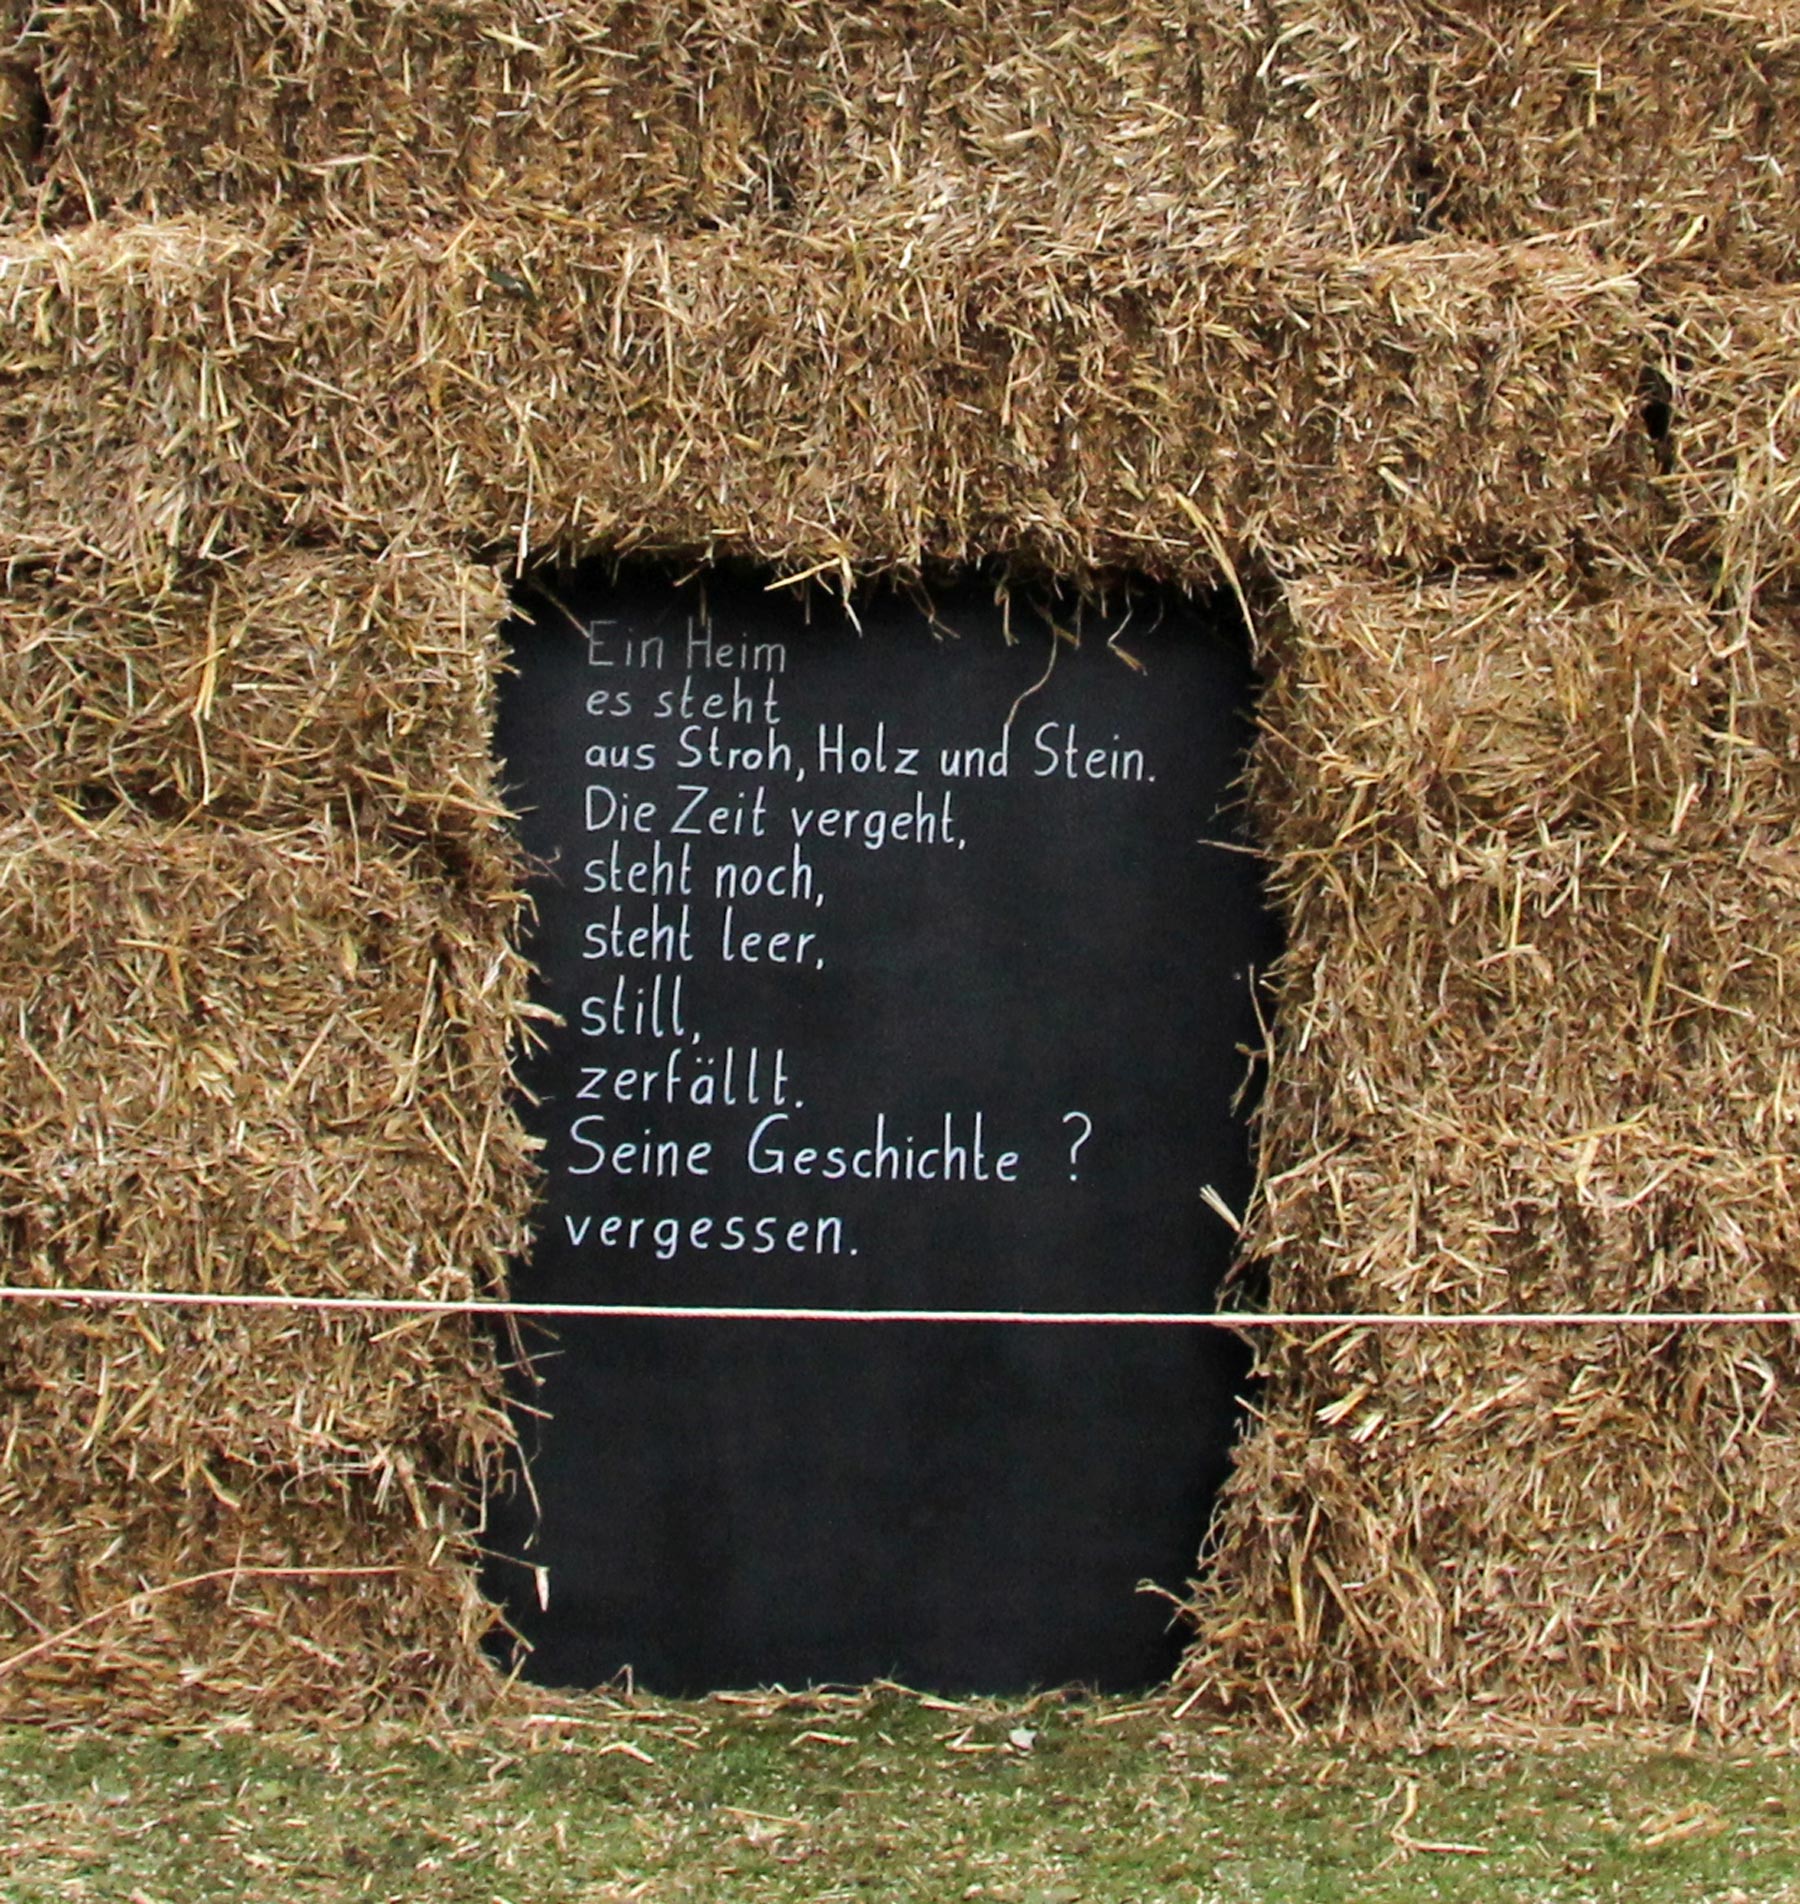 Ein Heim
es steht
aus Stroh, Holz und Stein.
Die Zeit vergeht,
steht noch,
steht leer,
still,
zerfällt.
Seine Geschichte ?
vergessen.